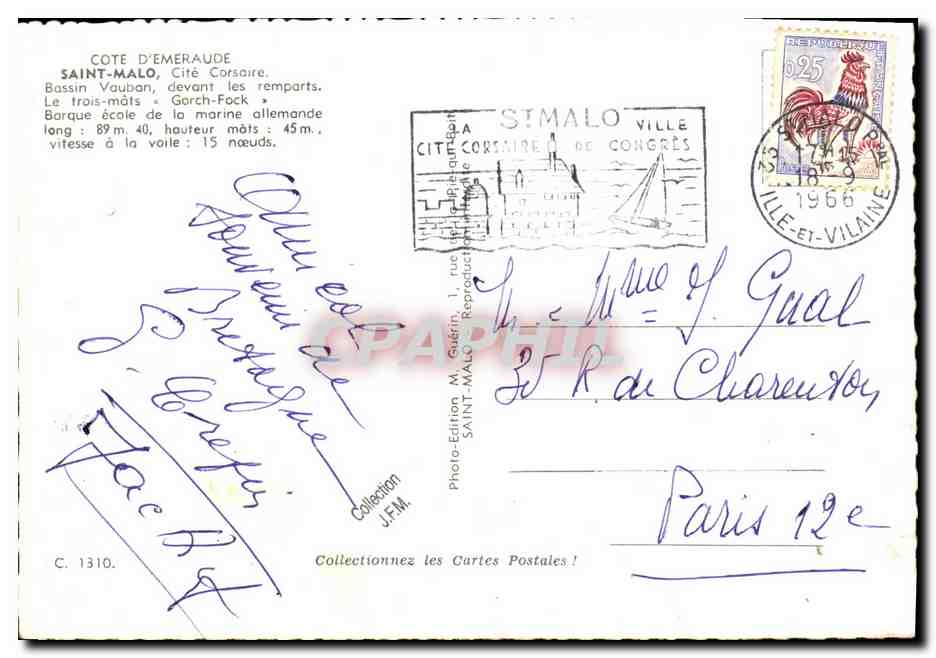 COTE D'EMERAUDE
SAINT-MALO, Cité Corsaire.
Bassin Vauban, devant les remparts.
Le trois-mâts « Gorch-Fock »
Barque école de la marine allemande
long : 89 m. 40, hauteur mâts : 45 m.,
vitesse à la voile : 15 nœuds.
LA ST MALO VILLE
CITÉ CORSAIRE DE CONGRÈS
REPUBLIQUE FRANÇAISE
0,25
35 ST MALO PPAL
18-9
1966
ILLE-ET-VILAINE
Amical
souvenir de
Bretagne
Jac
M & Mme J. Gual
35 R. de Charenton
Paris 12e
Photo-Edition M. Guérin, 1, rue de la Pie-qui-Boit
SAINT-MALO Reproduction interdite
CPAPHIL
Collection
J.F.M.
C. 1310.
Collectionnez les Cartes Postales !